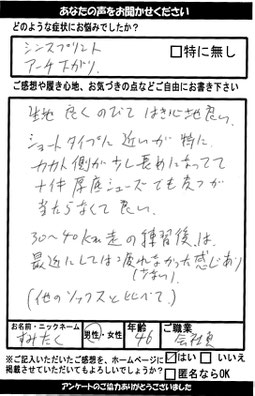 あなたの声をお聞かせください
どのような症状にお悩みでしたか?
シンスプリント
アーチ下がり。
□特に無し
ご感想や履き心地、お気づきの点などご自由にお書き下さい
生地 良くのびて はき心地良い。
ショートタイプに近いが 特に
カカト側が少し長めになってて
ナイキ 厚底シューズでも皮フが
当たらなくて良い。
30〜40km走の練習後は、
最近にしては疲れなかった感じあり
(少ない)
(他のソックスと比べて。)
お名前・ニックネーム
すみたく
男性・女性
年齢
46
ご職業
会社員
※ご記入いただいたご感想を、ホームページに
掲載させていただいてもよろしいでしょうか?
☑はい □いいえ
□匿名ならOK
アンケートのご協力ありがとうございました